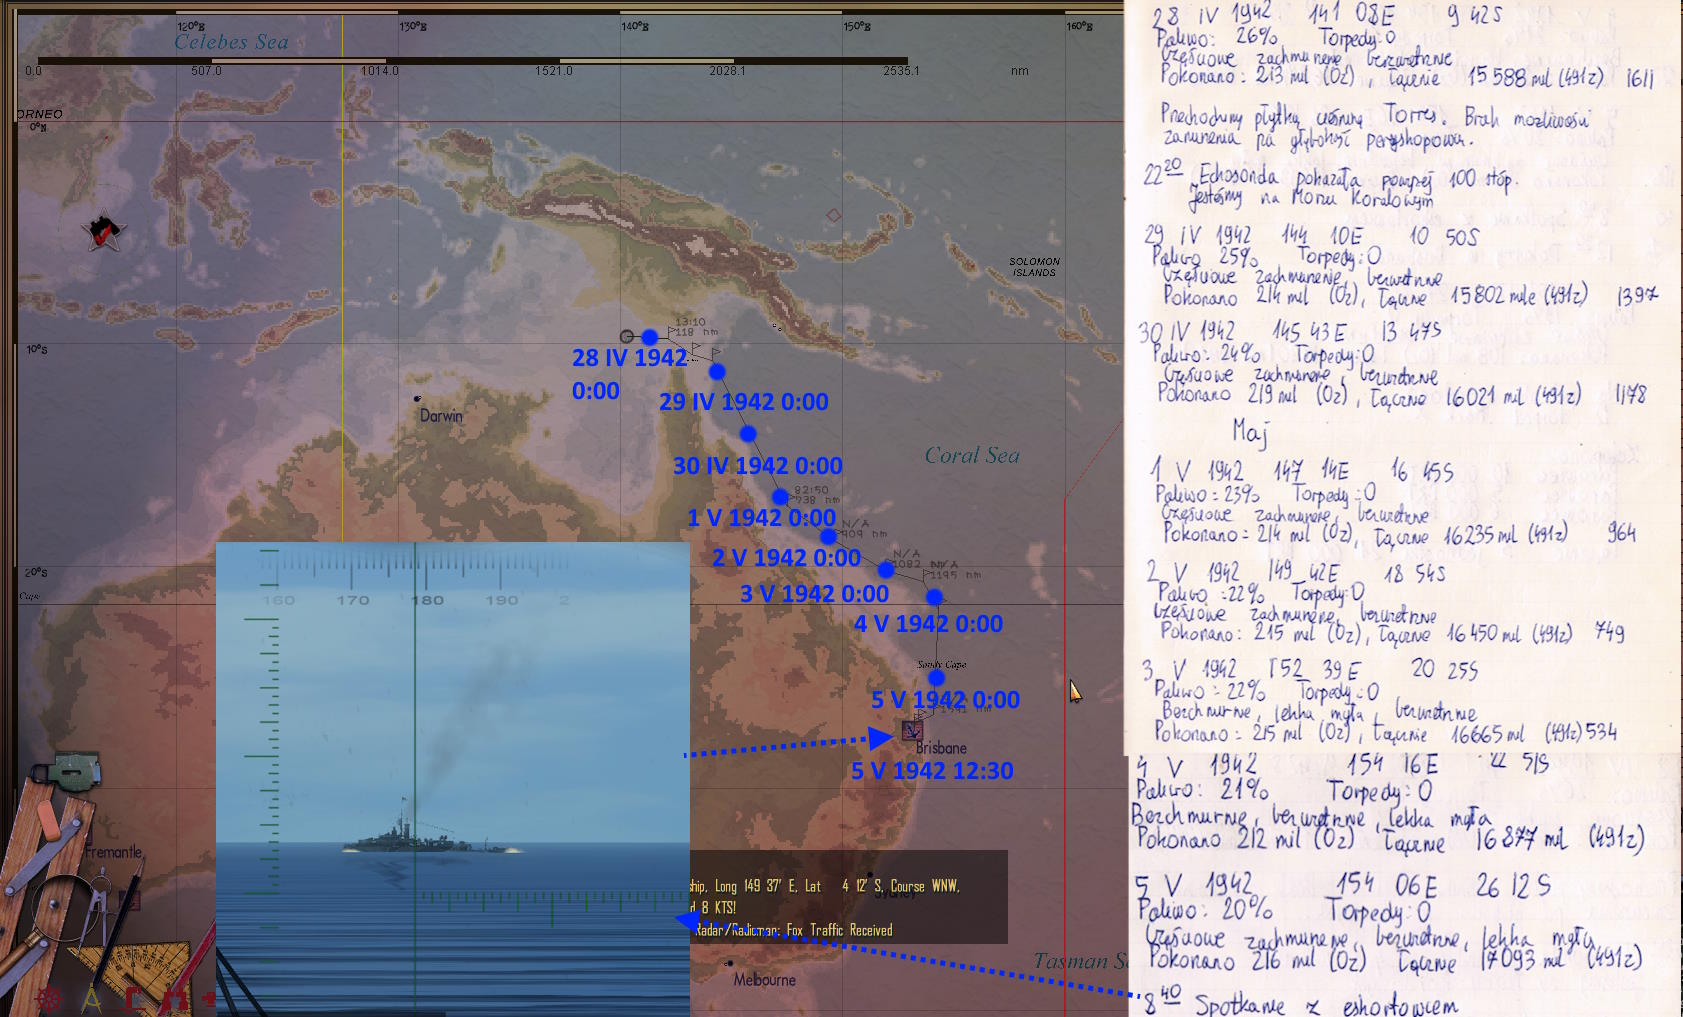 120°E
130°E
140°E
150°E
160°E
Celebes Sea
0.0
507.0
1014.0
1521.0
2028.1
2535.1
nm
ORNEO
0°N
SOLOMON
ISLANDS
13:10
118 nm
10°S
28 IV 1942
0:00
29 IV 1942 0:00
Darwin
Coral Sea
30 IV 1942 0:00
82:50
738 nm
1 V 1942 0:00
N/A
909 nm
2 V 1942 0:00
N/A
1082
N/A
1195 nm
20°S
Cape
3 V 1942 0:00
4 V 1942 0:00
160
170
180
190
2
Sandy Cape
5 V 1942 0:00
Brisbane
5 V 1942 12:30
Fremantle
ship, Long 149 37' E, Lat 4 12' S, Course WNW,
d 8 KTS!
Radar/Radioman: Fox Traffic Received
Sydney
Melbourne
Tasman S
28 IV 1942 141 08E 9 42S
Paliwo: 26% Torpedy: 0
Częściowe zachmurzenie bezwietrznie
Pokonano: 213 mil (Oz), Łącznie 15 588 mil (491z) 1611
Przechodzimy płytką cieśninę Torres. Brak możliwości
zanurzenia na głębokość peryskopową.
22 20 Echosonda pokazała powyżej 100 stóp.
Jesteśmy na Morzu Koralowym
29 IV 1942 144 10E 10 50S
Paliwo 25% Torpedy: 0
Częściowe zachmurzenie, bezwietrznie
Pokonano 214 mil (Oz), Łącznie 15802 mile (491z) 1397
30 IV 1942 145 43E 13 47S
Paliwo: 24% Torpedy: 0
Częściowe zachmurzenie, bezwietrznie
Pokonano 219 mil (Oz), Łącznie 16021 mil (491z) 1178
Maj
1 V 1942 147 14E 16 45S
Paliwo = 23% Torpedy: 0
Częściowe zachmurzenie, bezwietrznie
Pokonano = 214 mil (Oz), Łącznie 16235 mil (491z) 964
2 V 1942 149 42E 18 54S
Paliwo = 22% Torpedy: 0
Częściowe zachmurzenie, bezwietrznie
Pokonano: 215 mil (Oz), Łącznie 16450 mil (491z) 749
3 V 1942 152 39E 20 25S
Paliwo = 22% Torpedy: 0
Bezchmurnie, lekka mgła, bezwietrznie
Pokonano = 215 mil (Oz), Łącznie 16665 mil (491z) 534
4 V 1942 154 16E 22 51S
Paliwo: 21% Torpedy: 0
Bezchmurnie, bezwietrznie, lekka mgła
Pokonano 212 mil (Oz) Łącznie 16877 mil (491z)
5 V 1942 154 06E 26 12S
Paliwo: 20% Torpedy: 0
Częściowe zachmurzenie, bezwietrzne, lekka mgła
Pokonano 216 mil (Oz) Łącznie 17093 mil (491z)
8 40 Spotkanie z eskortowcem